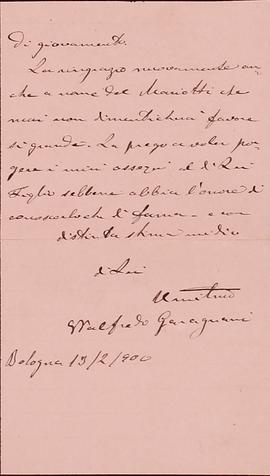 di giovamento.
La ringrazio nuovamente an-
che a nome del Mariotti che
mai non dimenticherà favore
sì grande. La prego a voler por-
gere i miei ossequi al di Lei
Figlio sebbene abbia l'onore di
conoscerlo che di fama - e con
distinta stima mi dico
di Lei
Walfredo
Bologna 13/2/900